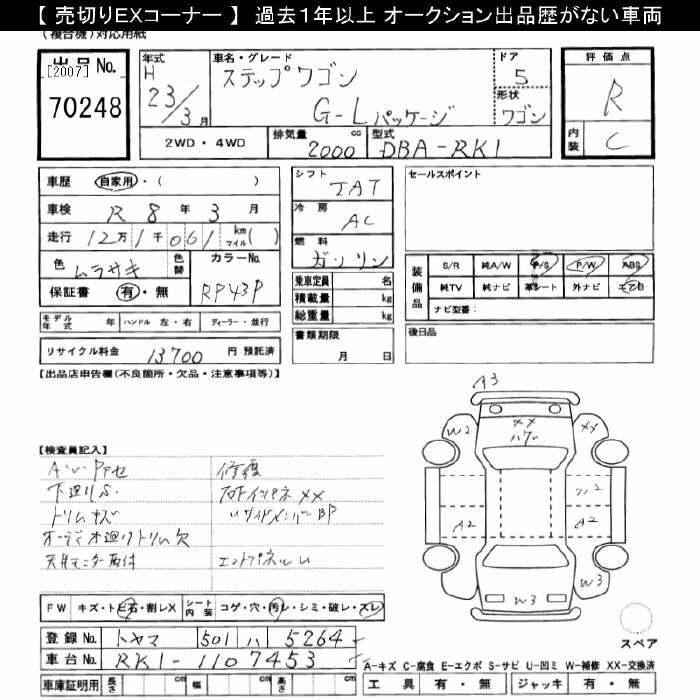 【 売切りEXコーナー 】 過去１年以上 オークション出品歴がない車両
(複合機)対応用紙
出品No.
[2007]
70248
年式
H
23/3月
車名・グレード
ステップワゴン
G-Lパッケージ
ドア
5
形状
ワゴン
評価点
R
内装
C
2WD・4WD
排気量
2000
cc
型式
DBA-RK1
車歴 自家用・( )
車検 R 8年 3月
走行 12万1千061 km マイル( )
色 ムラサキ
色替
カラーNo.
RP43P
保証書 有・無
モデル年式 年 ハンドル 左・右 ディーラー・並行
リサイクル料金 13700 円 預託済
シフト
IAT
冷房
AC
燃料
ガソリン
乗車定員 名
積載量 kg
総重量 kg
書類期限
月 日
セールスポイント
装備品
S/R 純A/W P/S P/W ABS
純TV 純ナビ 革シート 外ナビ エアB
ナビ型番:
後日品
【出品店申告欄(不良箇所・欠品・注意事項等)】
【検査員記入】
下廻りS.
トリムキズ
オーディオ廻りトリム欠
天井モニター取付
修復
A3
W2
XX
ハゲ
XX
A2
A2
W3
W3
スペア
FW キズ・トビ石・割レX
シート内装 コゲ・穴・汚レ・シミ・破レ・スレ
登録No. トヤマ 501 ハ 5264
車台No. RK1-1107453
車庫証明用 長さ cm 幅 cm 高さ cm
A-キズ C-腐食 E-エクボ S-サビ U-凹ミ W-補修 XX-交換済
工具 有・無 ジャッキ 有・無